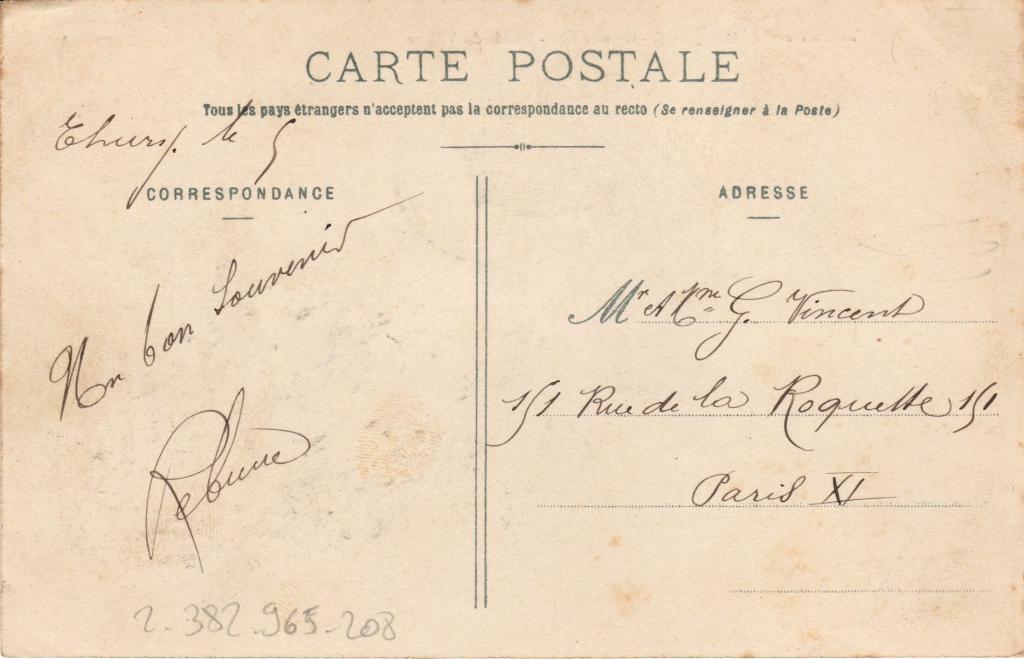 CARTE POSTALE
Tous les pays étrangers n'acceptent pas la correspondance au recto (Se renseigner à la Poste)
Thury le 5
CORRESPONDANCE
Un bon souvenir
ADRESSE
Mr & Mme G. Vincent
151 Rue de la Roquette 151
Paris XI
2.382.965.208